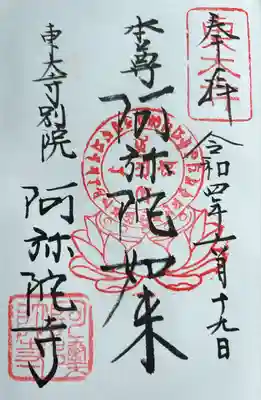 奉拝
令和四年 月十九日
本尊
阿弥陀如来
東大寺別院
阿弥陀寺